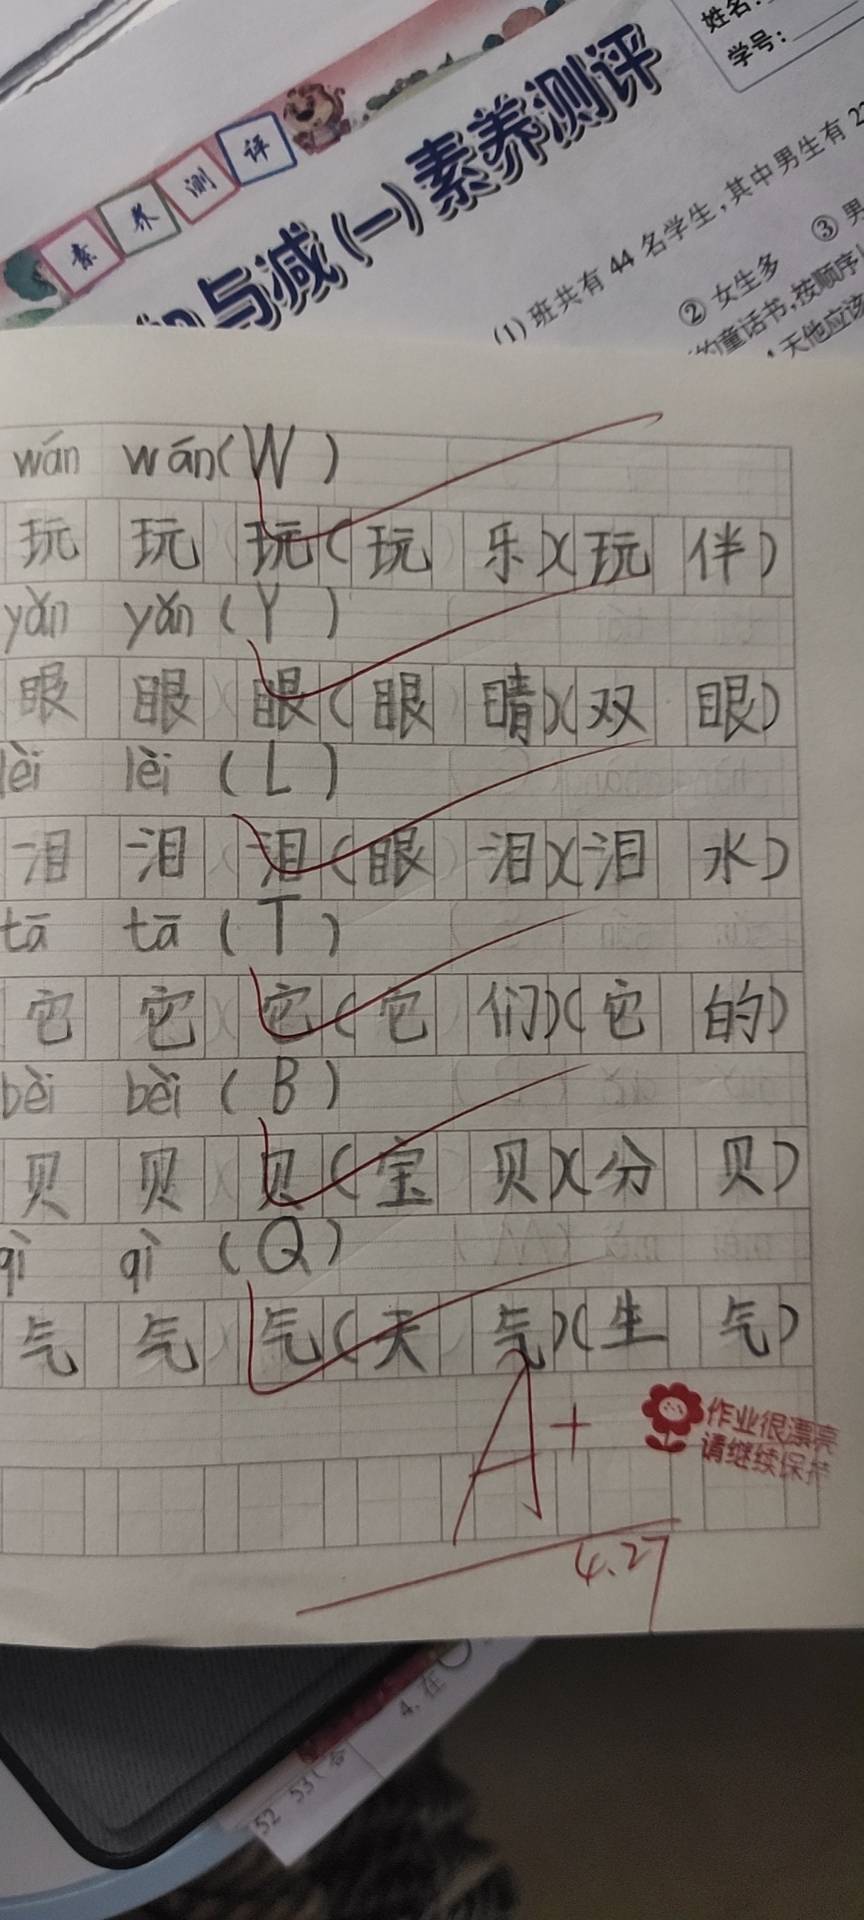 姓名:
学号:
素养测评
与减(一)素养测评
(1)班共有44名学生,其中男生有2
② 女生多 ③ 男
的童话书,按顺序
天他应该
wán wán(W)
玩 玩 玩(玩乐)(玩伴)
yǎn yǎn(Y)
眼 眼 眼(眼晴)(双眼)
lèi lèi(L)
泪 泪 泪(眼泪)(泪水)
tā tā(T)
它 它 它(它们)(它的)
bèi bèi(B)
贝 贝 贝(宝贝)(分贝)
qì qì(Q)
气 气 气(天气)(生气)
A+
作业很漂亮
请继续保持
4.27
4.在
52 53(